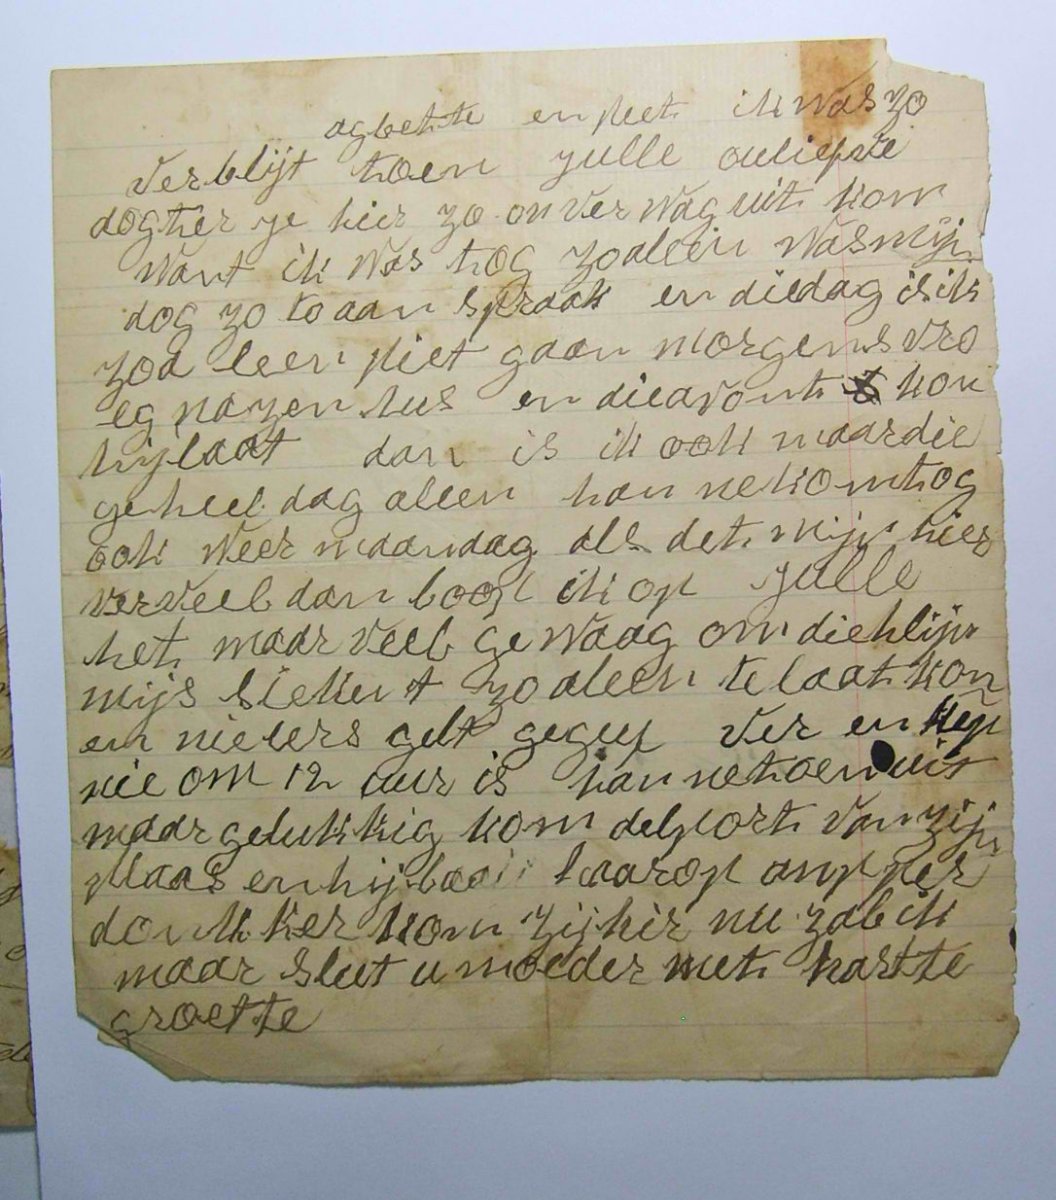 agbette en piet ik was zo
verblijt toen julle ouliefve
dogter je hier zo onver wag uit kom
want ik was tog zo aleen was mijn
dog zo to aan spraak en diedag is ik
zoa leen piet gaan morgens vro
eg nazen hus en dieavont kon
hij laat dan is ik ook maar die
geheel dag aleen han ne komt og
ook weer maandag als det mijn hier
verveel dan loop ik op julle
het maar veel ge waag om die klijn
mijs siekent zo aleen te laat kon
en nieiers gelt gegeef ver en
nie om 12 uur is han ne toen uit
maar gelukkig kom delport van zijn
plaas en hij laai haar op amper
donkker kom zij hir nu zal ik
maar sleet u moeder met hartte
groette